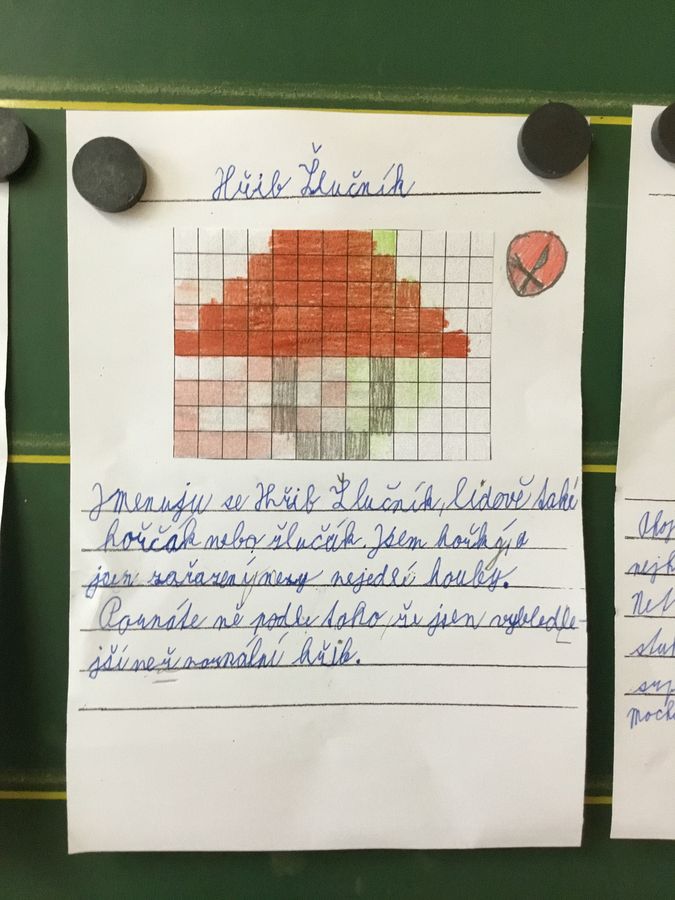 Hřib Žlučník
Jmenuju se Hřib Žlučník, lidově také
hořčák nebo žlučák. Jsem hořký, a
jsem zařazený mezi nejedlí houby.
Poznáte mě podle toho že jsem vybledle-
jší než normální hřib.